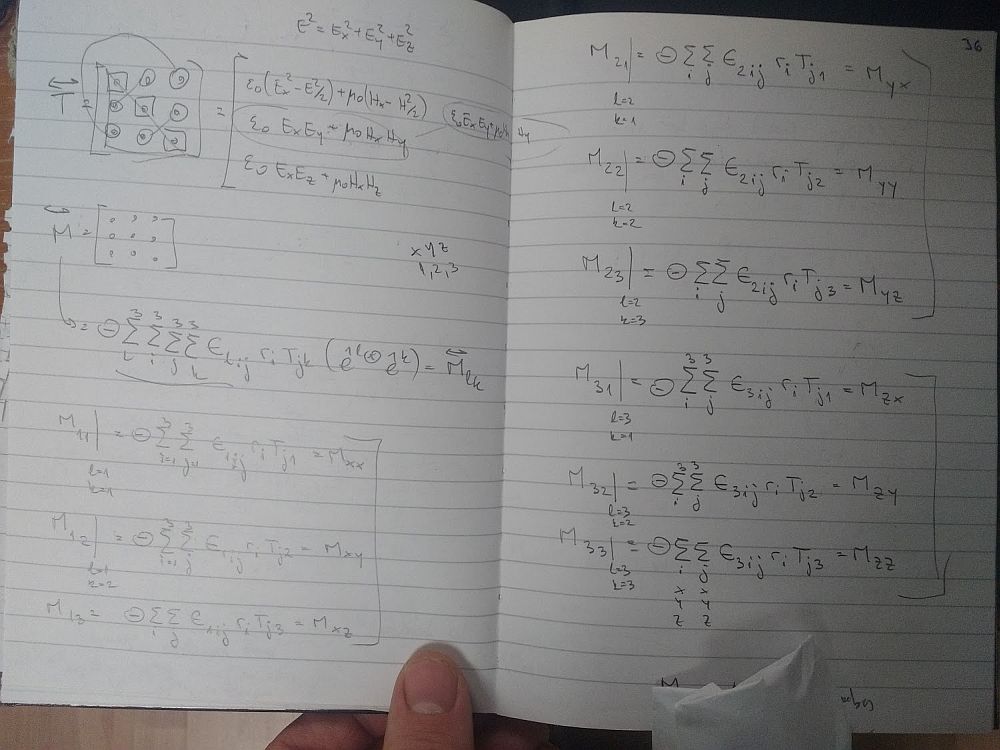 E² = Eₓ² + E_y² + E_z²
T = [ ] = [ ε₀(Eₓ² - E²/2) + μ₀(Hₓ² - H²/2)
ε₀ EₓE_y + μ₀HₓH_y
ε₀ EₓE_z + μ₀HₓH_z
M = [ ]
x y z
1, 2, 3
= ⊖ Σ³_l Σ³_i Σ³_j Σ³_k ϵ_lij r_i T_jk (ê^l ⊗ ê^k) = M_lk
M₁₁| = ⊖ Σ³_i=1 Σ³_j=1 ϵ_1ij r_i T_j1 = M_xx
l=1
k=1
M₁₂| = ⊖ Σ³_i=1 Σ³_j ϵ_1ij r_i T_j2 = M_xy
l=1
k=2
M₁₃ = ⊖ Σ_i Σ_j ϵ_1ij r_i T_j3 = M_xz
36
M₂₁| = ⊖ Σ_i Σ_j ϵ_2ij r_i T_j1 = M_yx
l=2
k=1
M₂₂| = ⊖ Σ_i Σ_j ϵ_2ij r_i T_j2 = M_yy
l=2
k=2
M₂₃| = ⊖ Σ_i Σ_j ϵ_2ij r_i T_j3 = M_yz
l=2
k=3
M₃₁| = ⊖ Σ³_i Σ³_j ϵ_3ij r_i T_j1 = M_zx
l=3
k=1
M₃₂| = ⊖ Σ³_i Σ³_j ϵ_3ij r_i T_j2 = M_zy
l=3
k=2
M₃₃| = ⊖ Σ_i Σ_j ϵ_3ij r_i T_j3 = M_zz
l=3
k=3
x x
y y
z z